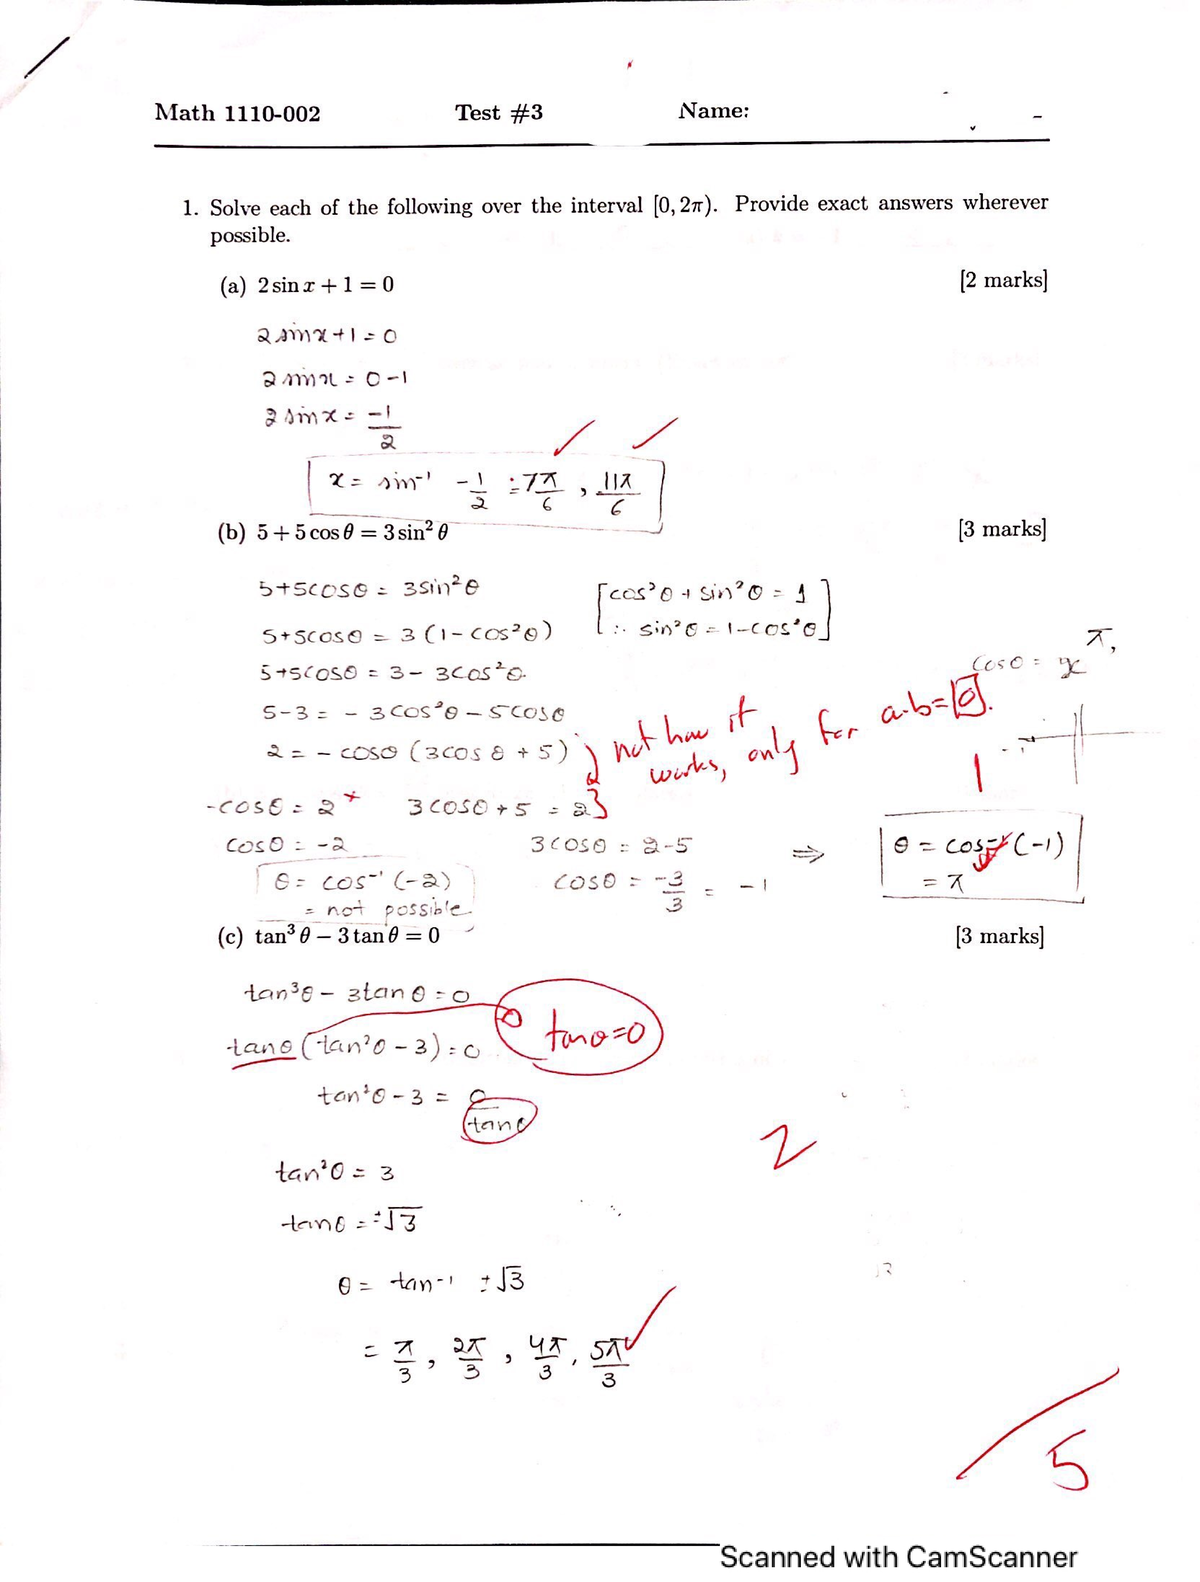 Math 1110-002 Test #3 Name:
1. Solve each of the following over the interval [0, 2π). Provide exact answers wherever
possible.
(a) 2 sin x + 1 = 0 [2 marks]
2 sinx + 1 = 0
2 sinx = 0 - 1
2 sinx = -1/2
x = sin⁻¹ -1/2 = 7π/6 , 11π/6
(b) 5 + 5 cos θ = 3 sin² θ [3 marks]
5+5cosθ = 3sin²θ [cos²θ + sin²θ = 1
5+5cosθ = 3 (1-cos²θ) ∴ sin²θ = 1-cos²θ]
5+5cosθ = 3 - 3cos²θ. cosθ = x π,
5-3 = - 3cos²θ - 5cosθ
2 = - cosθ (3cosθ + 5) not how it works, only for a·b=0.
1
-cosθ = 2 3cosθ + 5 = 2
cosθ = -2 3cosθ = 2-5 ⇒ θ = cos⁻¹ (-1)
θ = cos⁻¹ (-2) cosθ = -3/3 = -1 = π
= not possible.
(c) tan³ θ − 3 tan θ = 0 [3 marks]
tan³θ - 3tanθ = 0
tanθ (tan²θ - 3) = 0 tanθ=0
tan²θ - 3 = 0/tanθ
2
tan²θ = 3
tanθ = ±√3
θ = tan⁻¹ ±√3
= π/3 , 2π/3 , 4π/3 , 5π/3
5
Scanned with CamScanner